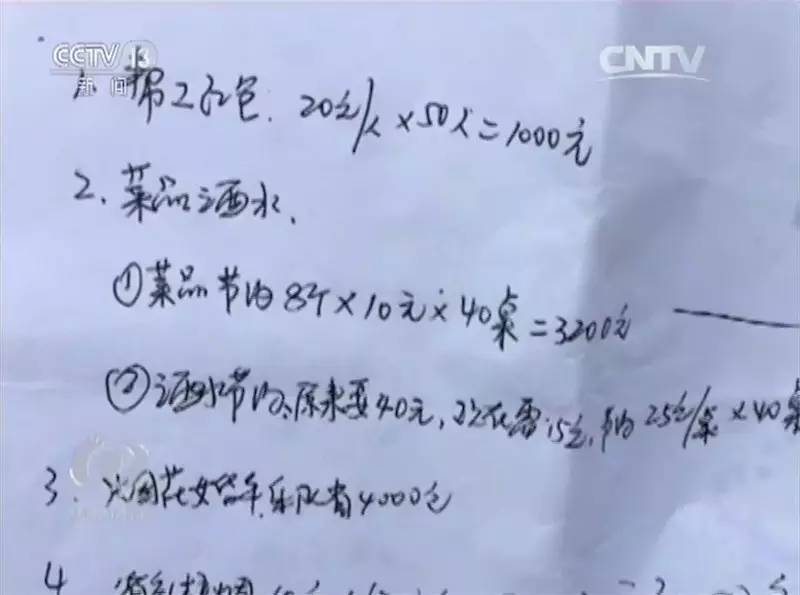 CCTV 13
新闻
CNTV
1、帮工红包: 20元/人×50人=1000元
2、菜品酒水、
①菜品节约8个×10元×40桌=3200元
②酒水节约、原来要40元,现在需15元,节约25元/桌×40桌
3、烟花 乐队省4000元
4